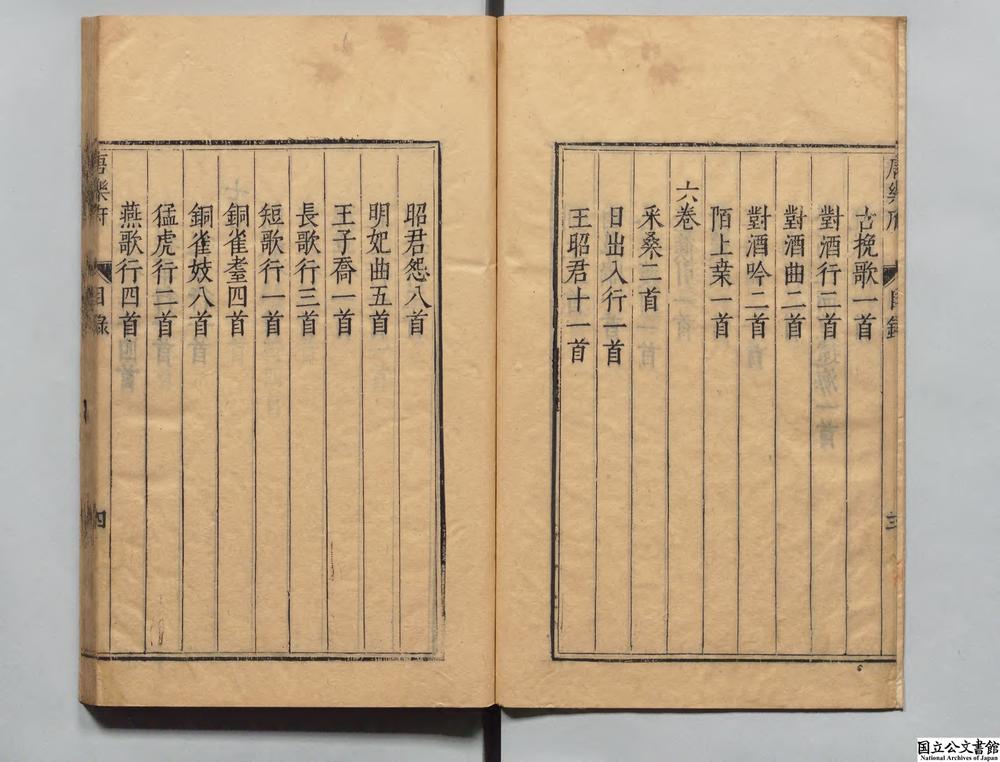 唐樂府 目錄 三
古挽歌一首
對酒行二首
對酒曲二首
對酒吟二首
陌上桒一首
六卷
采桑二首
日出入行一首
王昭君十一首
昭君怨八首
明妃曲五首
王子喬一首
長歌行三首
短歌行一首
銅雀臺四首
銅雀妓八首
猛虎行二首
燕歌行四首
唐樂府 目錄 四
国立公文書館
National Archives of Japan